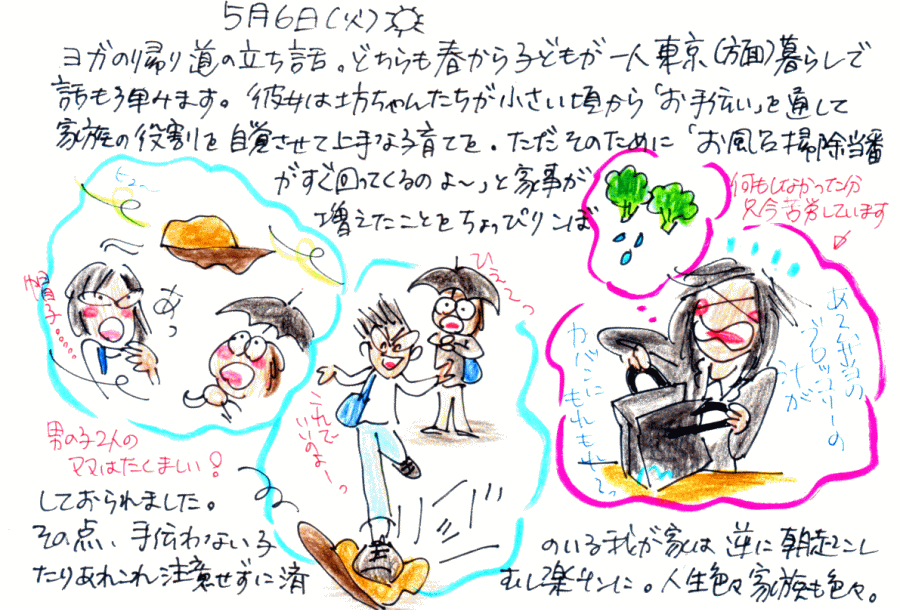 5月6日(火)
ヨガの帰り道の立ち話。どちらも春から子どもが一人東京(方面)暮らしで
話もう弾みます。彼女は坊ちゃんたちが小さい頃から「お手伝い」を通して
家族の役割を自覚させて上手な子育てを。ただそのために「お風呂掃除当番
がすぐ回ってくるのよ〜」と家事が
増えたことをちょっぴりこぼ
何もしなかった分
只今苦労しています
ヒュ〜
あっ
帽子……
ひえ〜っ
これで
いいのよーっ
お弁当の
ブロッコリーの
汁が
カバンに
もれもれ
男の子2人の
ママはたくましい!
しておられました。
その点、手伝わない子
のいる我が家は逆に朝起こし
たりあれこれ注意せずに済
むし楽チンに。人生色々家族も色々。